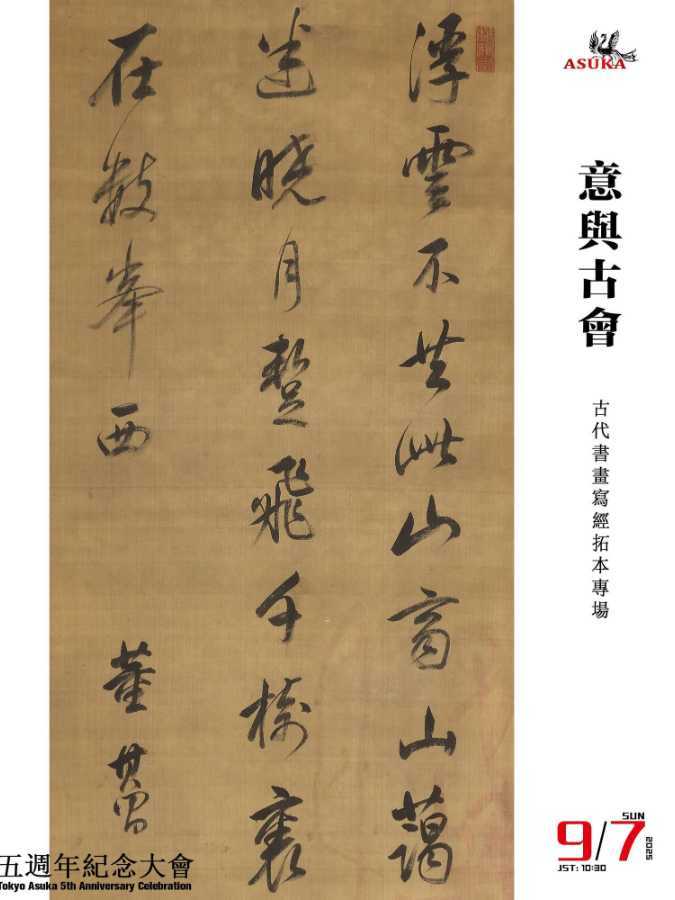 浮雲不共此山齊山藹
迷曉月蹔飛千樹裏
在數峯西
董其昌
ASUKA
意與古會
古代書畫寫經拓本專場
SUN
9/7
2025
JST: 10:30
五週年紀念大會
Tokyo Asuka 5th Anniversary Celebration